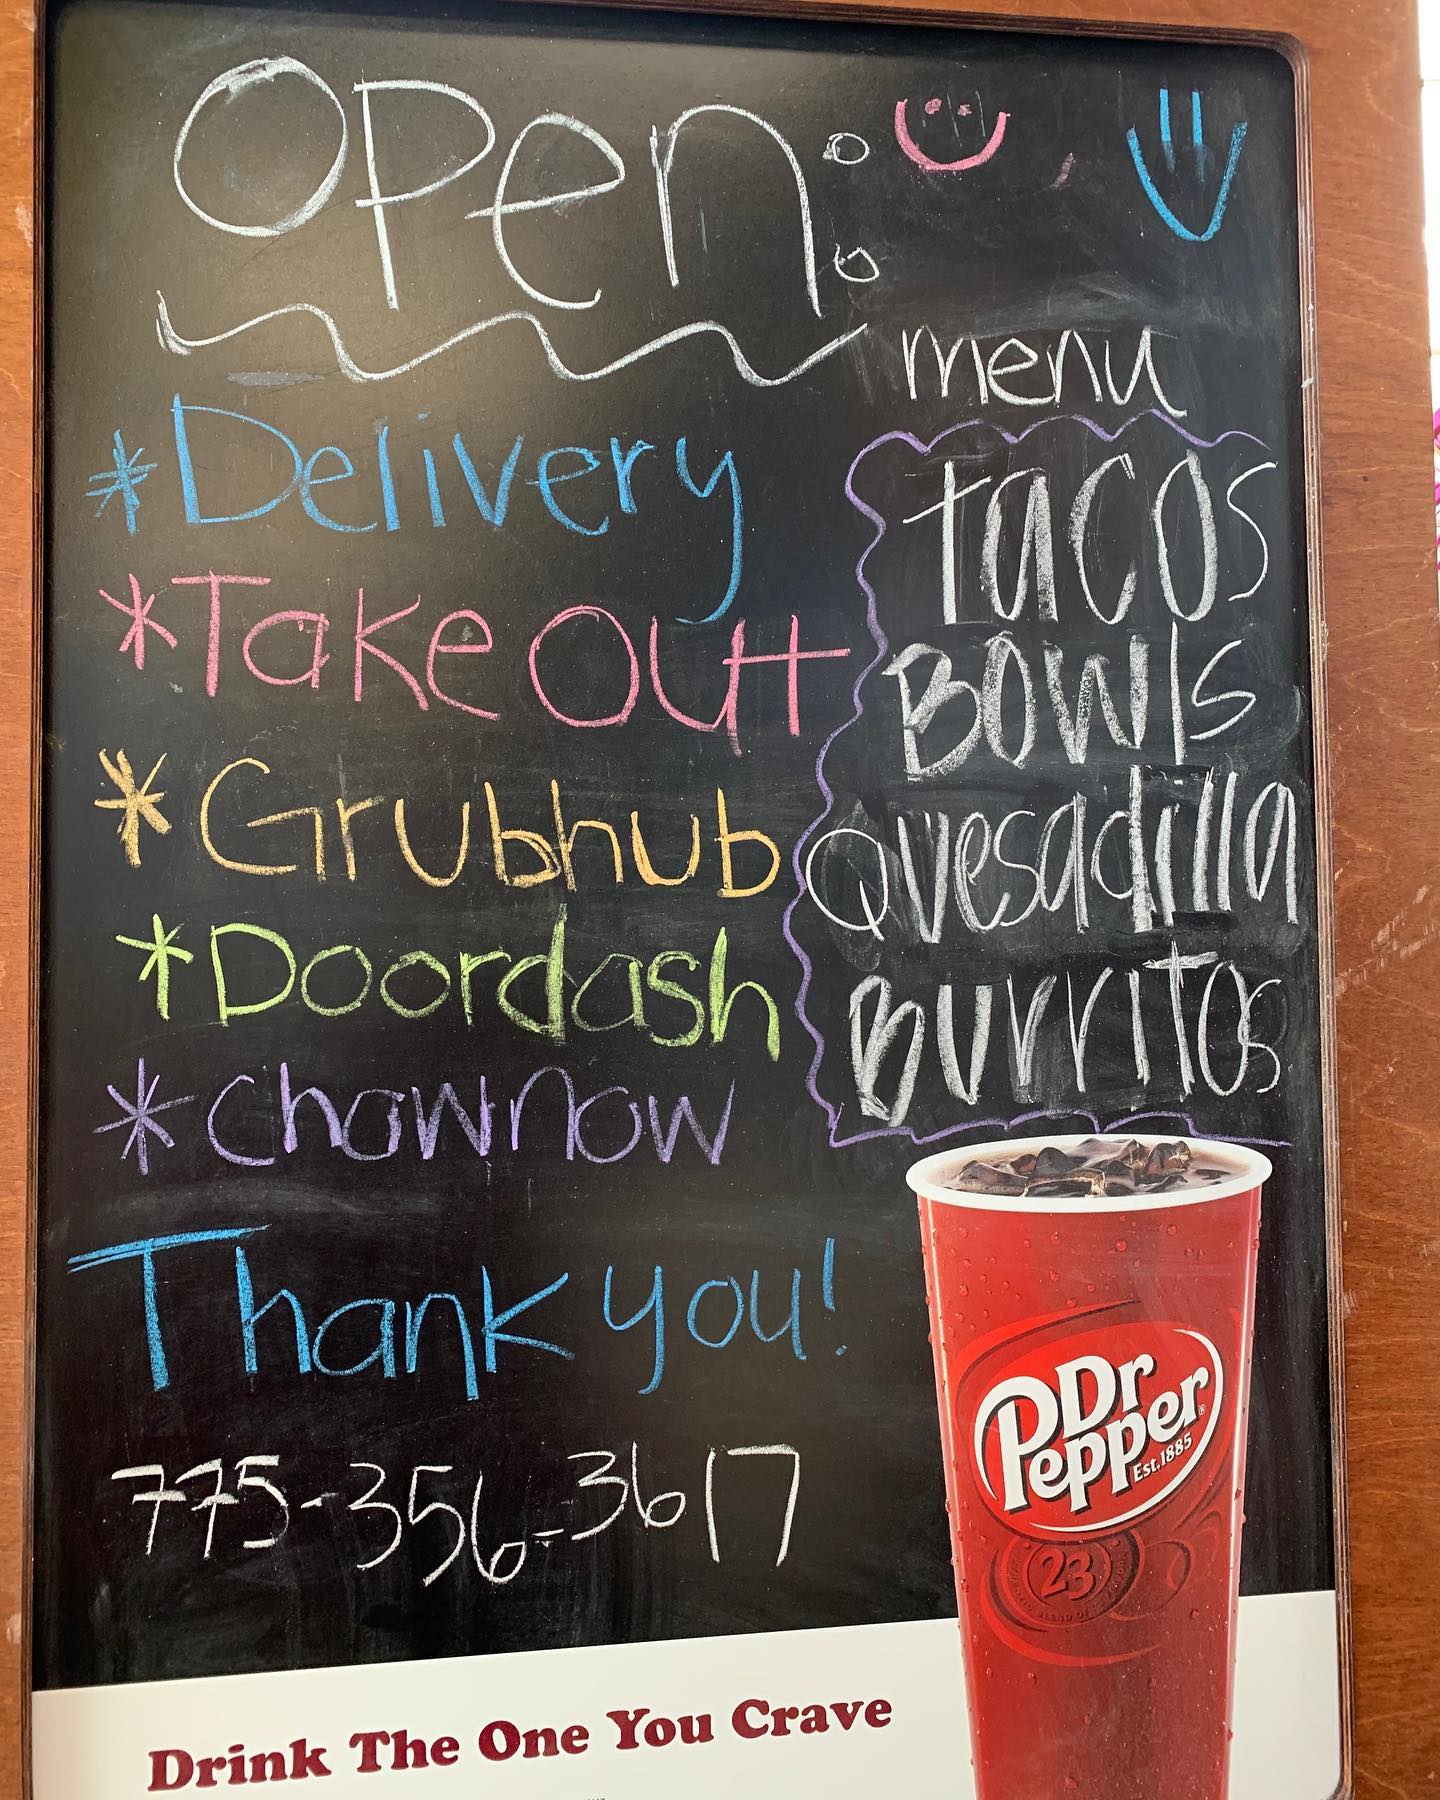 Open:
*Delivery
*Take out
*Grubhub
*Doordash
*Chownow
Thank you!
775-356-3617
menu
tacos
Bowls
Quesadilla
Burritos
Dr
Pepper®
Est.1885
23
Drink The One You Crave